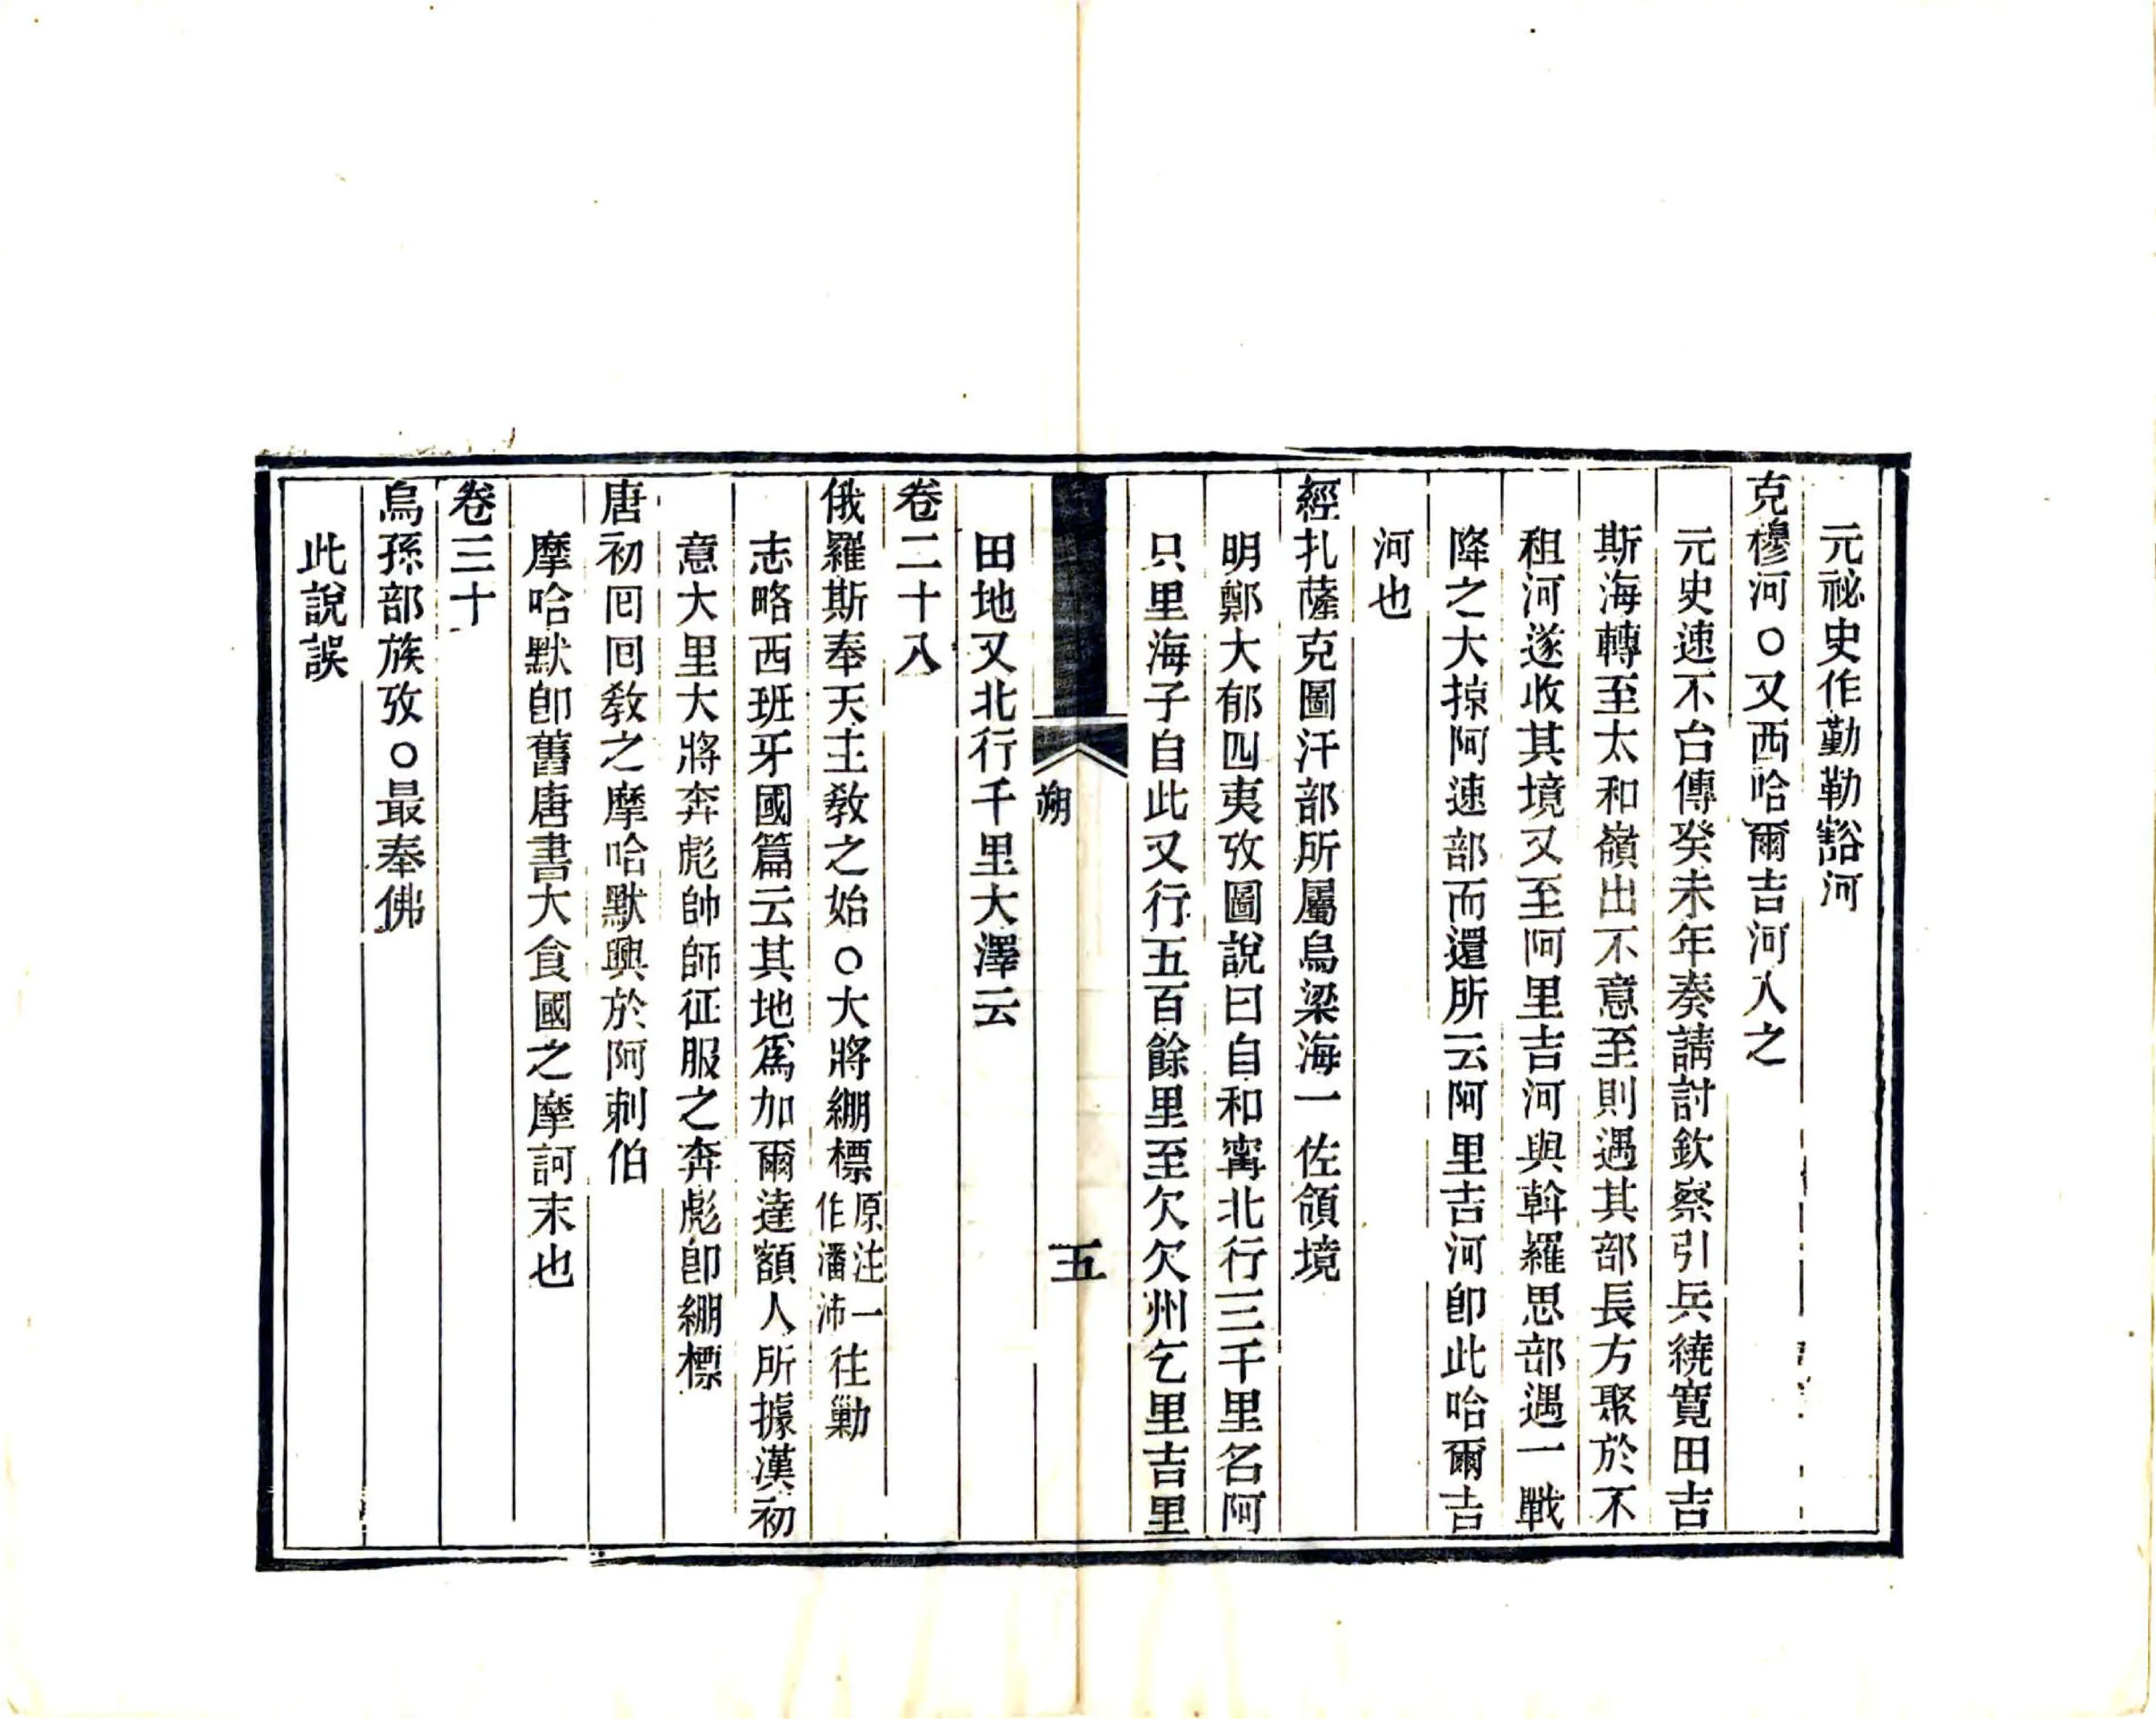 元祕史作勤勒豁河
克穆河○又西哈爾吉河入之
元史速不台傳癸未年奏請討欽察引兵繞寬田吉
斯海轉至太和嶺出不意至則遇其部長方聚於不
租河遂收其境又至阿里吉河與斡羅思部遇一戰
降之大掠阿速部而還所云阿里吉河卽此哈爾吉
河也
經扎薩克圖汗部所屬烏梁海一佐領境
明鄭大郁四夷攷圖說曰自和甯北行三千里名阿
只里海子自此又行五百餘里至欠欠州乞里吉里
朔
五
田地又北行千里大澤云
卷二十八
俄羅斯奉天主教之始○大將綳標原注一作潘沛往勦
志略西班牙國篇云其地爲加爾達額人所據漢初
意大里大將奔彪帥師征服之奔彪卽綳標
唐初回回教之摩哈默興於阿剌伯
摩哈默卽舊唐書大食國之摩訶末也
卷三十
烏孫部族攷○最奉佛
此說誤